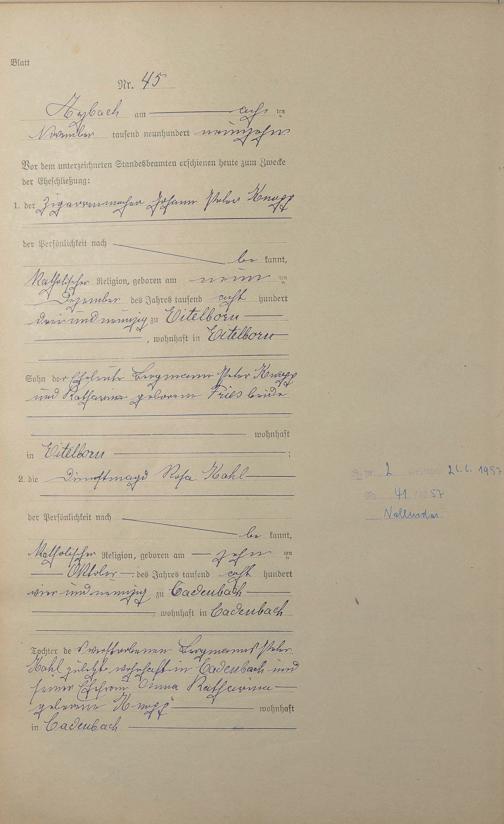 Blatt
Nr. 45
Arzbach am acht ten
November tausend neunhundert neunzehn
Vor dem unterzeichneten Standesbeamten erschienen heute zum Zwecke
der Eheschließung:
1. der Zigarrenmacher Johann Peter Knopp
der Persönlichkeit nach
be kannt,
Katholischer Religion, geboren am neun ten
Dezember des Jahres tausend acht hundert
drei und neunzig zu Eitelborn
, wohnhaft in Eitelborn
Sohn der Eheleute Bergmann Peter Knopp
und Katharina geborene Fries beide
wohnhaft
in Eitelborn ;
2. die Dienstmagd Rosa Kahl
der Persönlichkeit nach
be kannt,
Katholischer Religion, geboren am zehn ten
Oktober des Jahres tausend acht hundert
vier und neunzig zu Cadenbach
wohnhaft in Cadenbach
Tochter des verstorbenen Bergmanns Peter
Kahl zuletzt wohnhaft in Cadenbach und
seiner Ehefrau Anna Katharina
geborene Knopp wohnhaft
in Cadenbach
2 21.6.1957
41 57
Vallendar